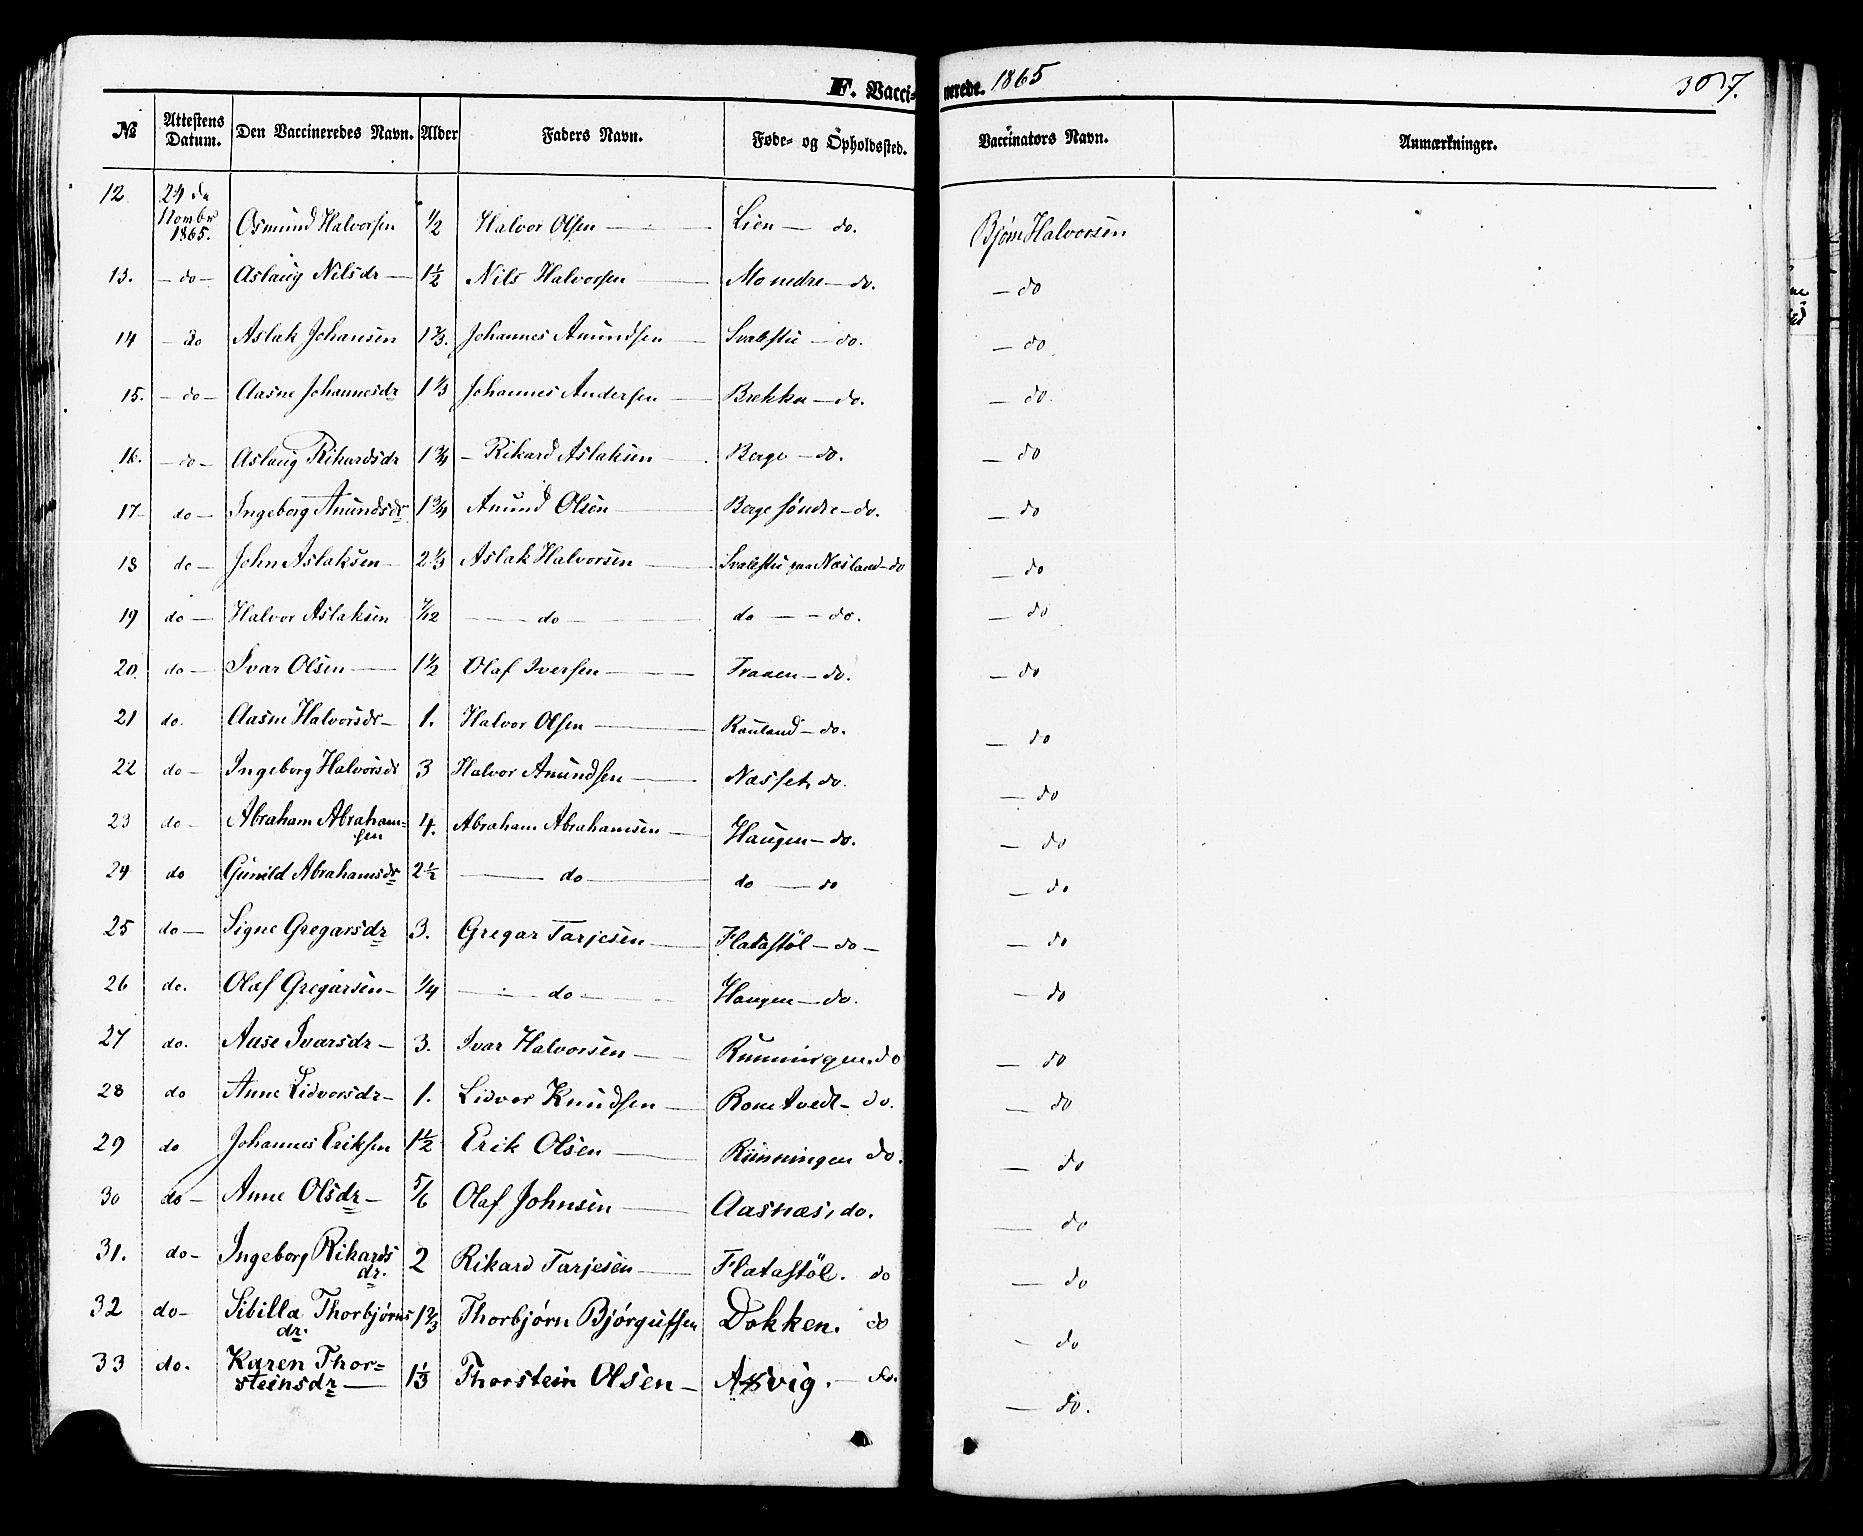 F. Vaccinerede. 1865
307.
No Attestens Datum. Den Vaccineredes Navn. Alder Faders Navn. Føde- og Opholdssted. Vaccinators Navn. Anmærkninger.
12 24 de Novbr 1865. Osmund Halvorsen 1/2 Halvor Olsen — Lien — do. Bjørn Halvorsen
13. — do — Aslaug Nilsdr — 1 1/2 Nils Halvorsen — Mo nedre — do. — do
14 — do Aslak Johansen 1 2/3. Johannes Anundsen — Svalestu — do. — do
15. — do — Aasne Johannesdr 1 1/3 Johannes Andersen — Brekka — do. — do.
16. — do — Aslaug Rikardsdr 1 3/4 — Rikard Aslaksen — Berge — do. — do
17 — do — Ingeborg Anundsdr 1 3/4 Anund Olsen — Berge søndre — do. — do
18 do — John Aslaksen — 2 1/3 Aslak Halvorsen — Svalestu paa Næsland — do — do
19 do — Halvor Aslaksen 7/12 — do — do — do. — do
20. do — Ivar Olsen — 1 1/2 Olaf Iversen — Traaen — do. — do
21 do. Aasne Halvorsdr — 1. Halvor Olsen — Rauland — do. — do
22 do — Ingeborg Halvorsdr 3 Halvor Anundsen — Næsset, do. — do
23 do — Abraham Abrahamsen 4. Abraham Abrahamsen — Haugen — do. — do
24 do Gunild Abrahamsdr 2 1/2 — do — do — do — do
25 do — Signe Gregarsdr 3. Gregar Tarjesen — Flatastøl — do — — do
26 do. Olaf Gregarsen — 1/4 — do — Haugen — do. — do
27 do. Aase Ivarsdr — 3. Ivar Halvorsen — Runningen. do — do
28 do Anne Lidvorsdr — 1. Lidvor Knudsen — Romtvedt — do. — do
29 do Johannes Eriksen 1 1/2 Erik Olsen — Runningen do. — do
30 do — Anne Olsdr — 5/6 Olaf Johnsen — Aasnæs, do. — do
31. do — Ingeborg Rikardsdr. 2 Rikard Tarjesen — Flatastøl. do — do
32 do — Sibilla Thorbjørnsdr. 1 2/3 Thorbjørn Bjørgufsen Dokken. do — do
33 do. Karen Thorsteinsdr — 1 1/3 Thorstein Olsen — Asvig. — do. — do.